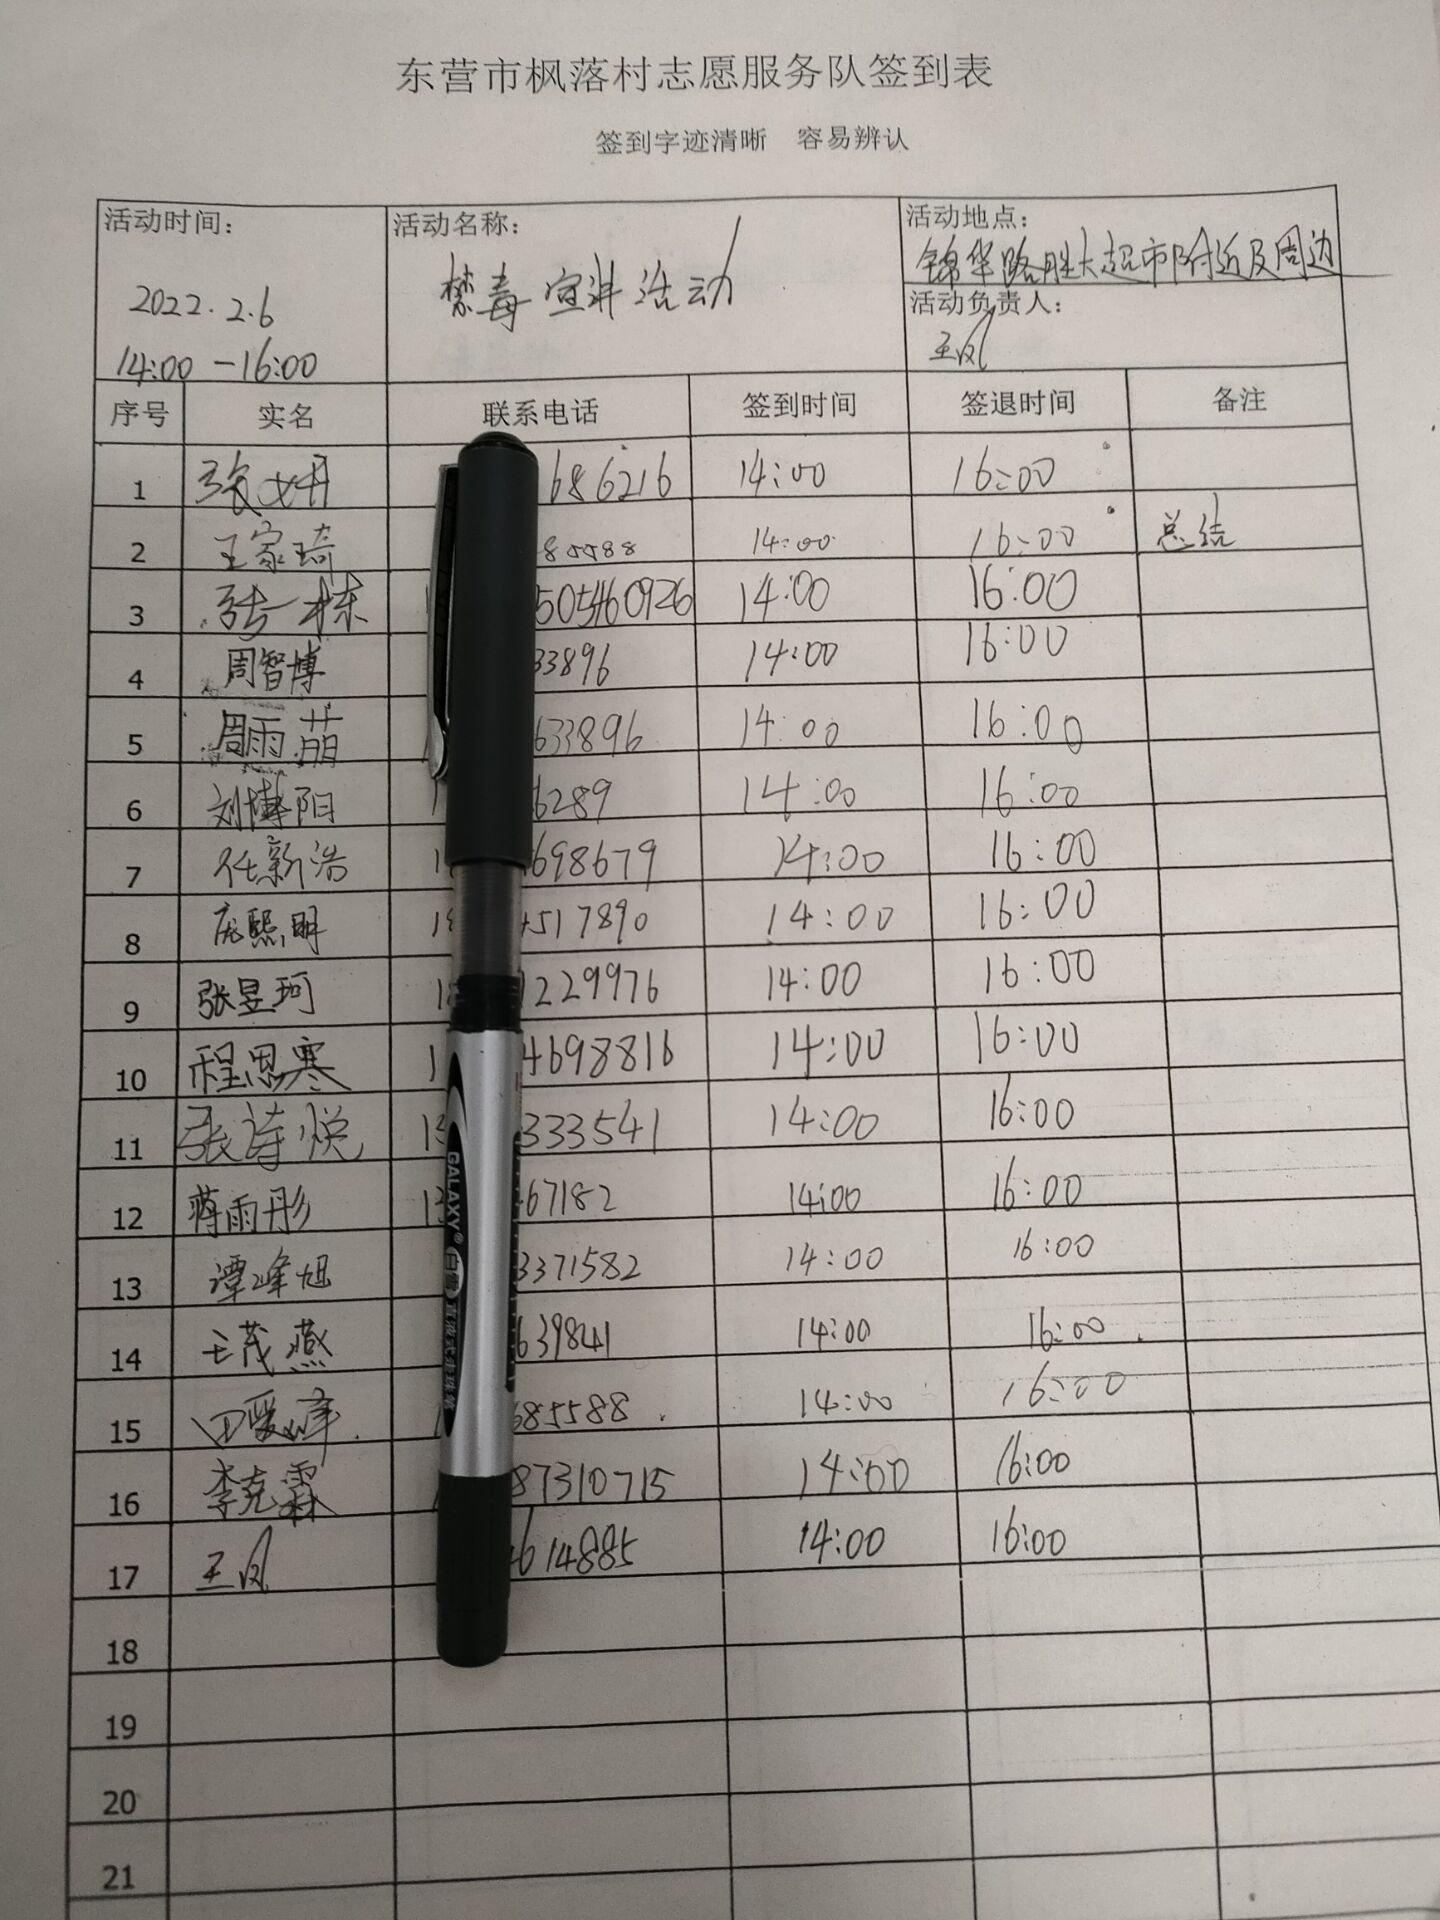 东营市枫落村志愿服务队签到表
签到字迹清晰 容易辨认
活动时间: 活动名称: 活动地点:
锦华路胜大超市附近及周边
2022.2.6 禁毒宣讲活动 活动负责人:
14:00-16:00 王凤
序号 实名 联系电话 签到时间 签退时间 备注
1 686216 14:00 16:00
2 王家琦 85588 14:00 16:00 总结
3 张一栋 505460926 14:00 16:00
4 周智博 33896 14:00 16:00
5 周雨萌 633896 14:00 16:00
6 刘博阳 6289 14:00 16:00
7 任新浩 1 698679 14:00 16:00
8 庞熙明 18 4517890 14:00 16:00
9 张昱珂 18 1229976 14:00 16:00
10 程思寒 1 4698816 14:00 16:00
11 张诗悦 13 333541 14:00 16:00
12 蒋雨彤 13 67182 14:00 16:00
13 谭峰旭 3371582 14:00 16:00
14 王茂燕 639841 14:00 16:00
15 田爱峰 685588 14:00 16:00
16 李克霖 87310715 14:00 16:00
17 王凤 614885 14:00 16:00
18
19
20
21
GALAXY® 白雪 直液式走珠笔